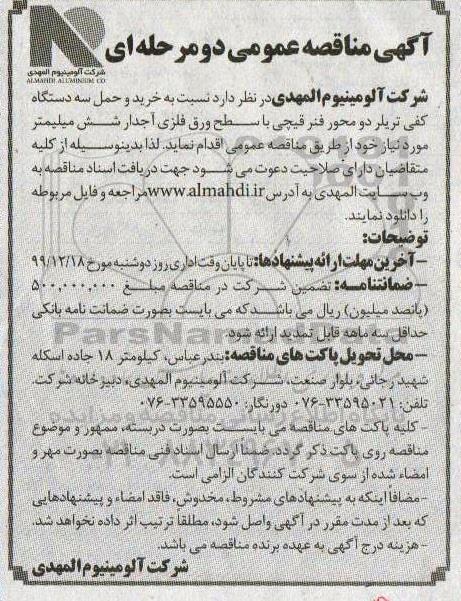 آگهی مناقصه عمومی دو مرحله ای
شرکت آلومینیوم المهدی
ALMAHDI ALUMINIUM CO
شرکت آلومینیوم المهدی در نظر دارد نسبت به خرید و حمل سه دستگاه
کفی تریلر دو محور فنر قیچی با سطح ورق فلزی آجدار شش میلیمتر
مورد نیاز خود از طریق مناقصه عمومی اقدام نماید. لذا بدینوسیله از کلیه
متقاضیان دارای صلاحیت دعوت می شود جهت دریافت اسناد مناقصه به
وب سایت المهدی به آدرس www.almahdi.ir مراجعه و فایل مربوطه
را دانلود نمایند.
توضیحات:
- آخرین مهلت ارائه پیشنهادها: تا پایان وقت اداری روز دوشنبه مورخ ۹۹/۱۲/۱۸
- ضمانتنامه: تضمین شرکت در مناقصه مبلغ ۵۰۰,۰۰۰,۰۰۰
(پانصد میلیون) ریال می باشد که می بایست بصورت ضمانت نامه بانکی
حداقل سه ماهه قابل تمدید ارائه شود.
- محل تحویل پاکت های مناقصه: بندرعباس، کیلومتر ۱۸ جاده اسکله
شهید رجائی، بلوار صنعت، شرکت آلومینیوم المهدی، دبیرخانه شرکت.
تلفن: ۳۳۵۹۵۰۲۱-۰۷۶ دورنگار: ۳۳۵۹۵۵۵۰-۰۷۶
- کلیه پاکت های مناقصه می بایست بصورت دربسته، ممهور و موضوع
مناقصه روی پاکت ذکر گردد. ضمناً ارسال اسناد فنی مناقصه بصورت مهر و
امضاء شده از سوی شرکت کنندگان الزامی است.
- مضافاً اینکه به پیشنهادهای مشروط، مخدوش، فاقد امضاء و پیشنهادهایی
که بعد از مدت مقرر در آگهی واصل شود، مطلقاً ترتیب اثر داده نخواهد شد.
- هزینه درج آگهی به عهده برنده مناقصه می باشد.
شرکت آلومینیوم المهدی